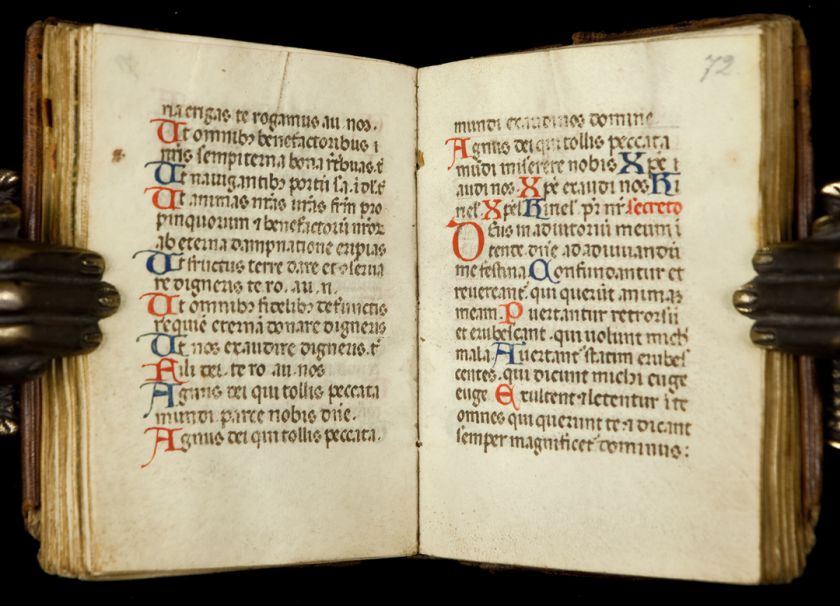 na erigas te rogamus au nos.
Ut omnibꝫ benefactoribus i
nr̄is sempiterna bona r̄tbuas. t̄
Ut nauigantibꝫ portū sa. i dı̄. t̄
Ut animas nr̄as nr̄as fr̄m pro
pinquorum ⁊ benefactorū nr̄or
ab eterna dampnatione eripias
Ut fructus terre dare et ꝯserua
re digneris te ro. au. n.
Ut omnibꝫ fidelibꝫ defunctis
requiē eternā donare digneris
Ut nos exaudire digneris. t̄
Fili dei. te ro au. nos
Agnus dei qui tollis peccata
mundi. parce nobis dn̄e.
Agnus dei qui tollis peccata.
72
mundi exaudi nos domine
Agnus dei qui tollis peccata
mūdi miserere nobis Xp̄e i
audi nos. Xp̄e exaudi nos Ki
riel' Xp̄el' Kiriel' pr̄ nr̄. secreto
Deus in adiutoriū meum i
tente. dn̄e ad adiuuandū
me festina. Confundantur et
reuereant'. qui querūt animaꝫ
meam. Auertantur retrorsū
et erubescant. qui uolunt mich
mala. Auertant' statim erubes
centes. qui dicunt michi euge
euge Exultent ⁊ letentur i te
omnes qui querunt te. ⁊ dicant
semper magnificet' dominus: